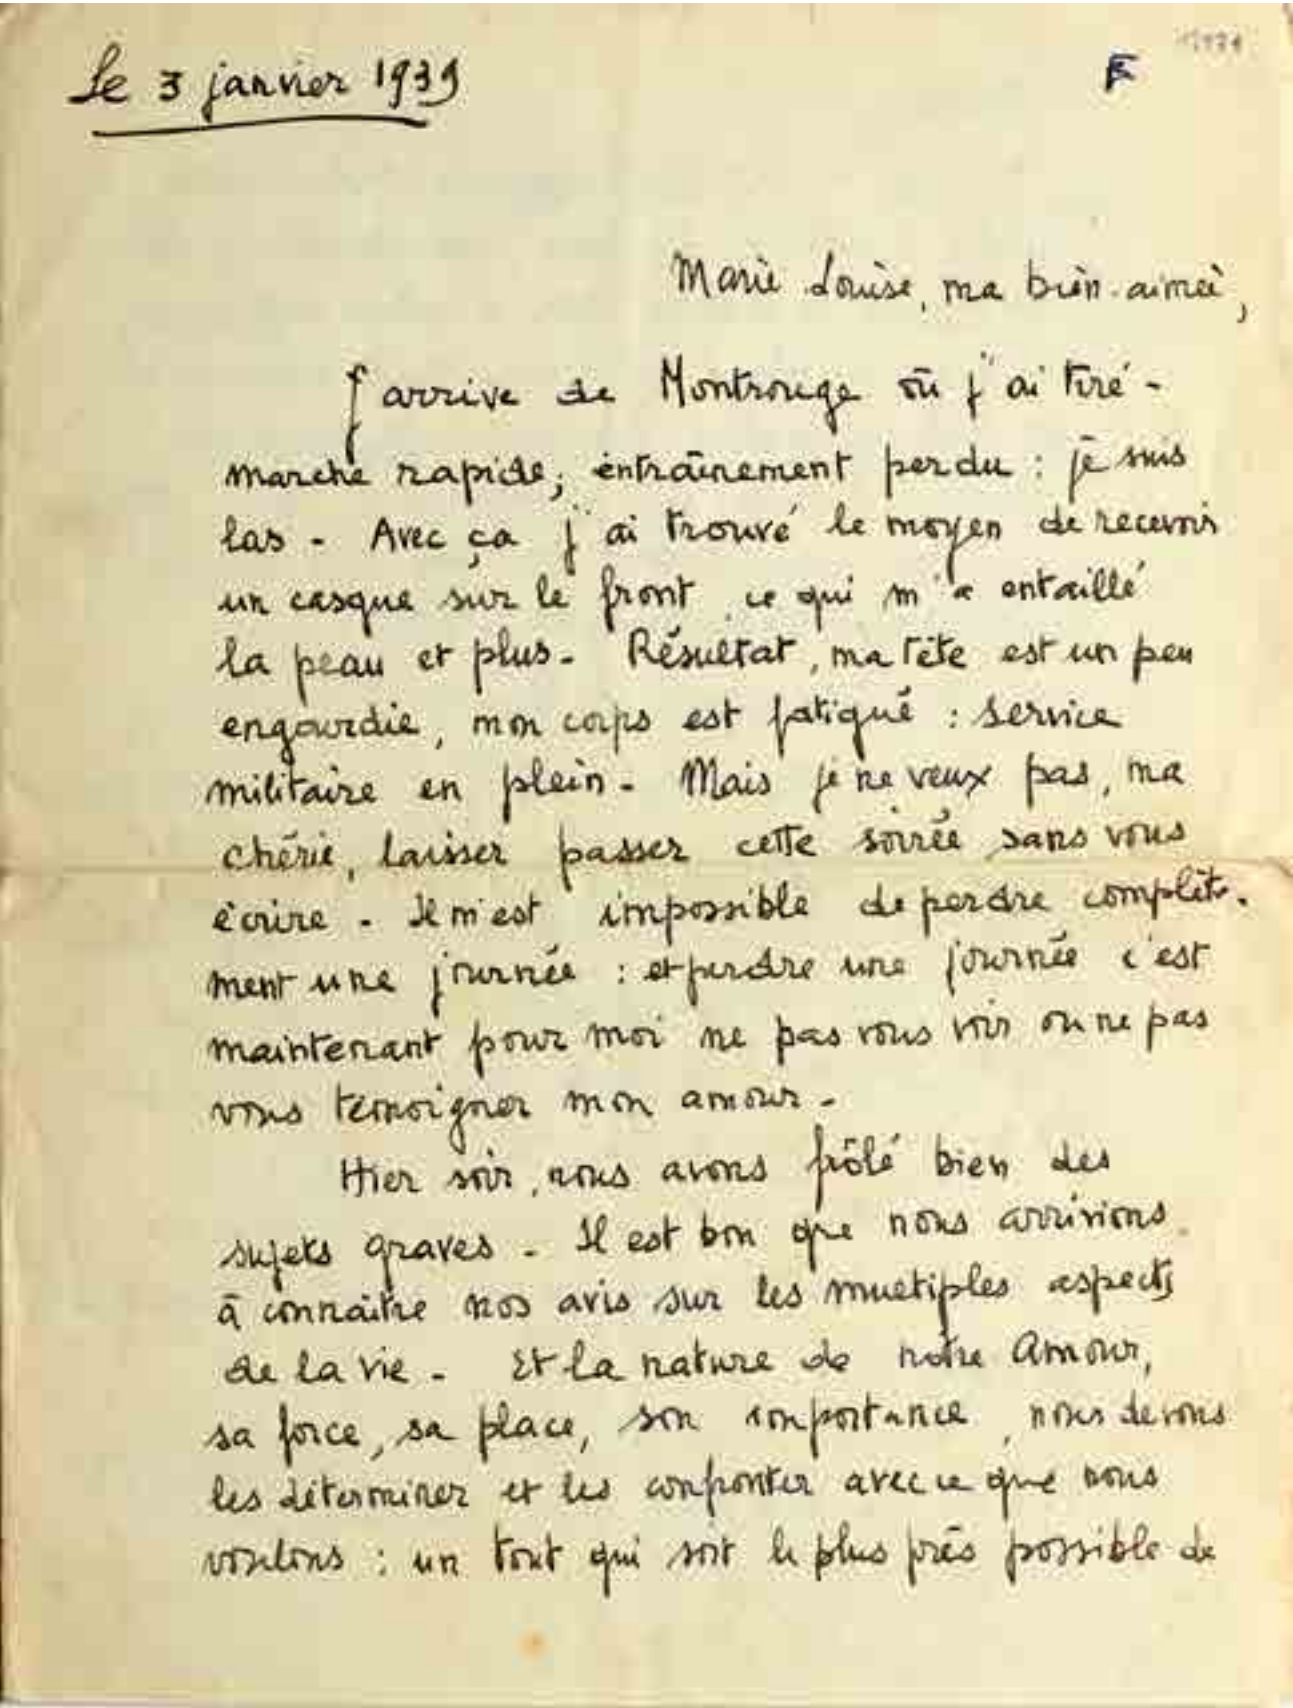 Le 3 janvier 1939
F
Marie Louise, ma bien-aimée,
J'arrive de Montrouge où j'ai tiré -
marche rapide, entraînement perdu : je suis
las - Avec ça j'ai trouvé le moyen de recevoir
un casque sur le front, ce qui m'a entaillé
la peau et plus - Résultat, ma tête est un peu
engourdie, mon corps est fatigué : service
militaire en plein - Mais je ne veux pas, ma
chérie, laisser passer cette soirée sans vous
écrire - Il m'est impossible de perdre complète-
ment une journée : et perdre une journée c'est
maintenant pour moi ne pas vous voir ou ne pas
vous témoigner mon amour -
Hier soir, nous avons frôlé bien des
sujets graves - Il est bon que nous arrivions
à connaître nos avis sur les multiples aspects
de la vie - Et la nature de notre Amour,
sa force, sa place, son importance, nous devons
les déterminer et les confronter avec ce que nous
voulons : un tout qui soit le plus près possible de